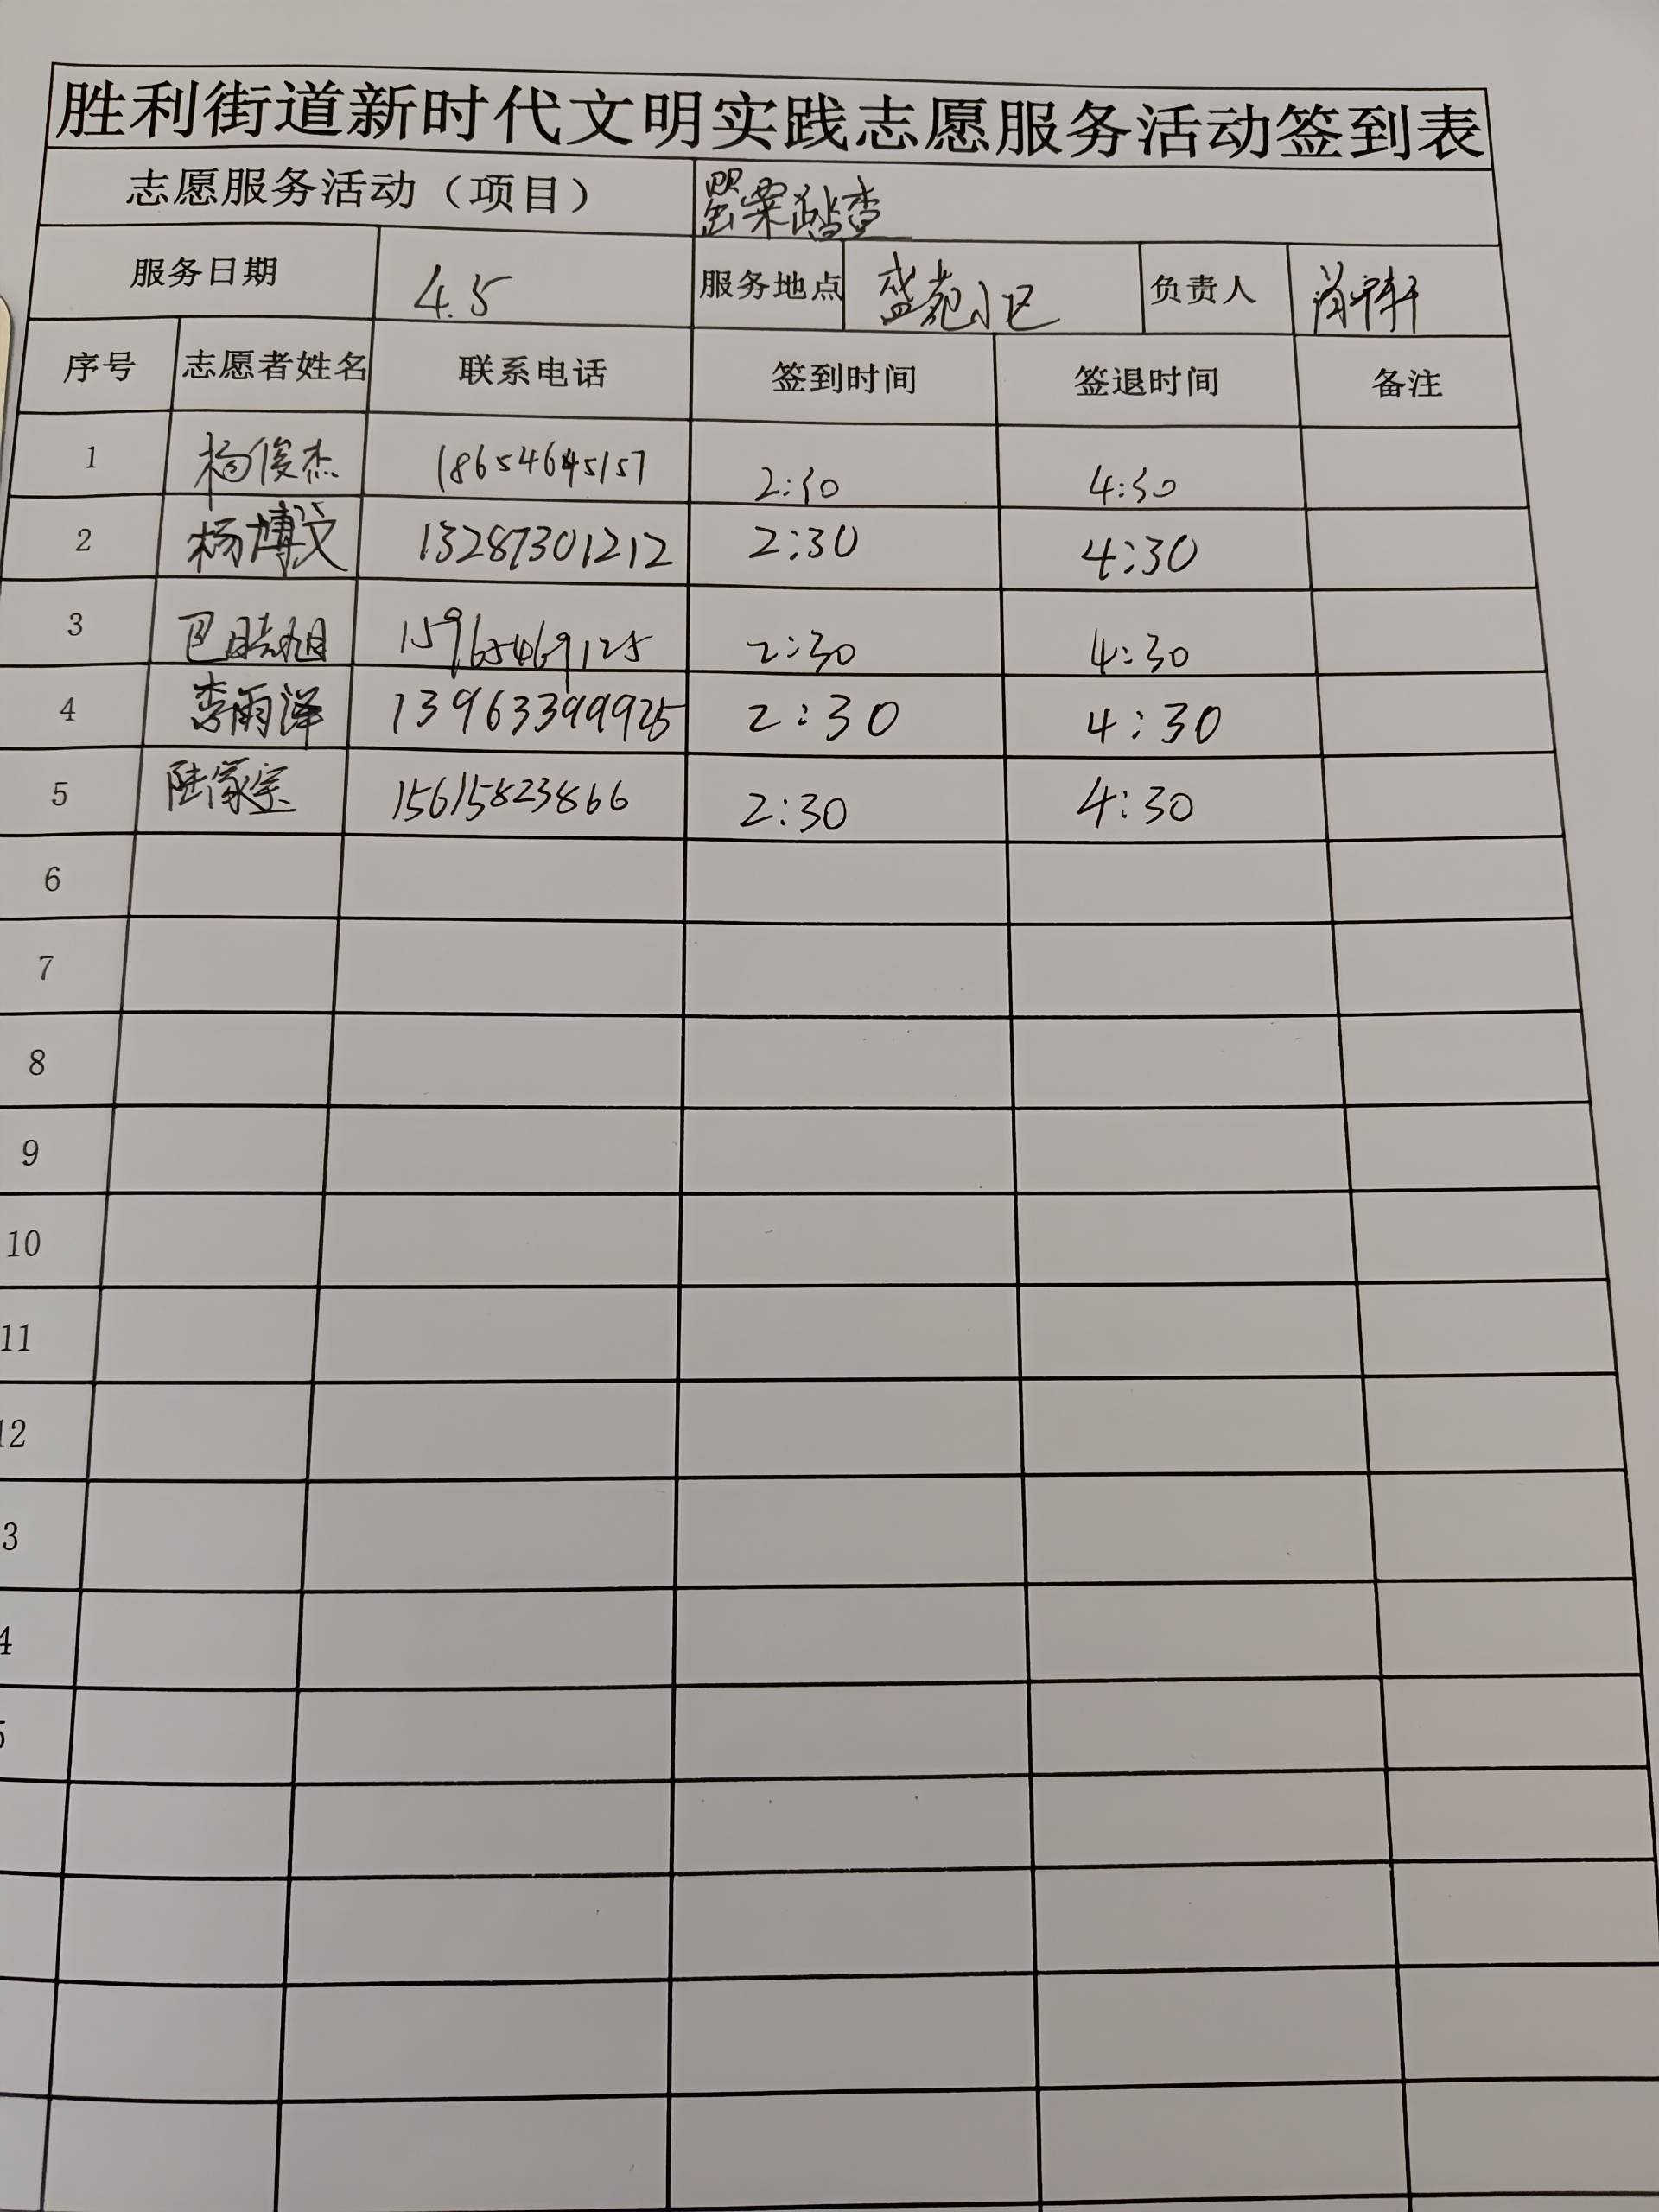 胜利街道新时代文明实践志愿服务活动签到表
志愿服务活动（项目） 罂粟踏查
服务日期 4.5 服务地点 盛苑小区 负责人
序号 志愿者姓名 联系电话 签到时间 签退时间 备注
1 杨俊杰 2:30 4:30
2 杨博文 13287301212 2:30 4:30
3 巴皓旭 15965469125 2:30 4:30
4 李雨泽 13963399925 2:30 4:30
5 陆家宝 15615823866 2:30 4:30
6
7
8
9
10
11
12
3
4
5